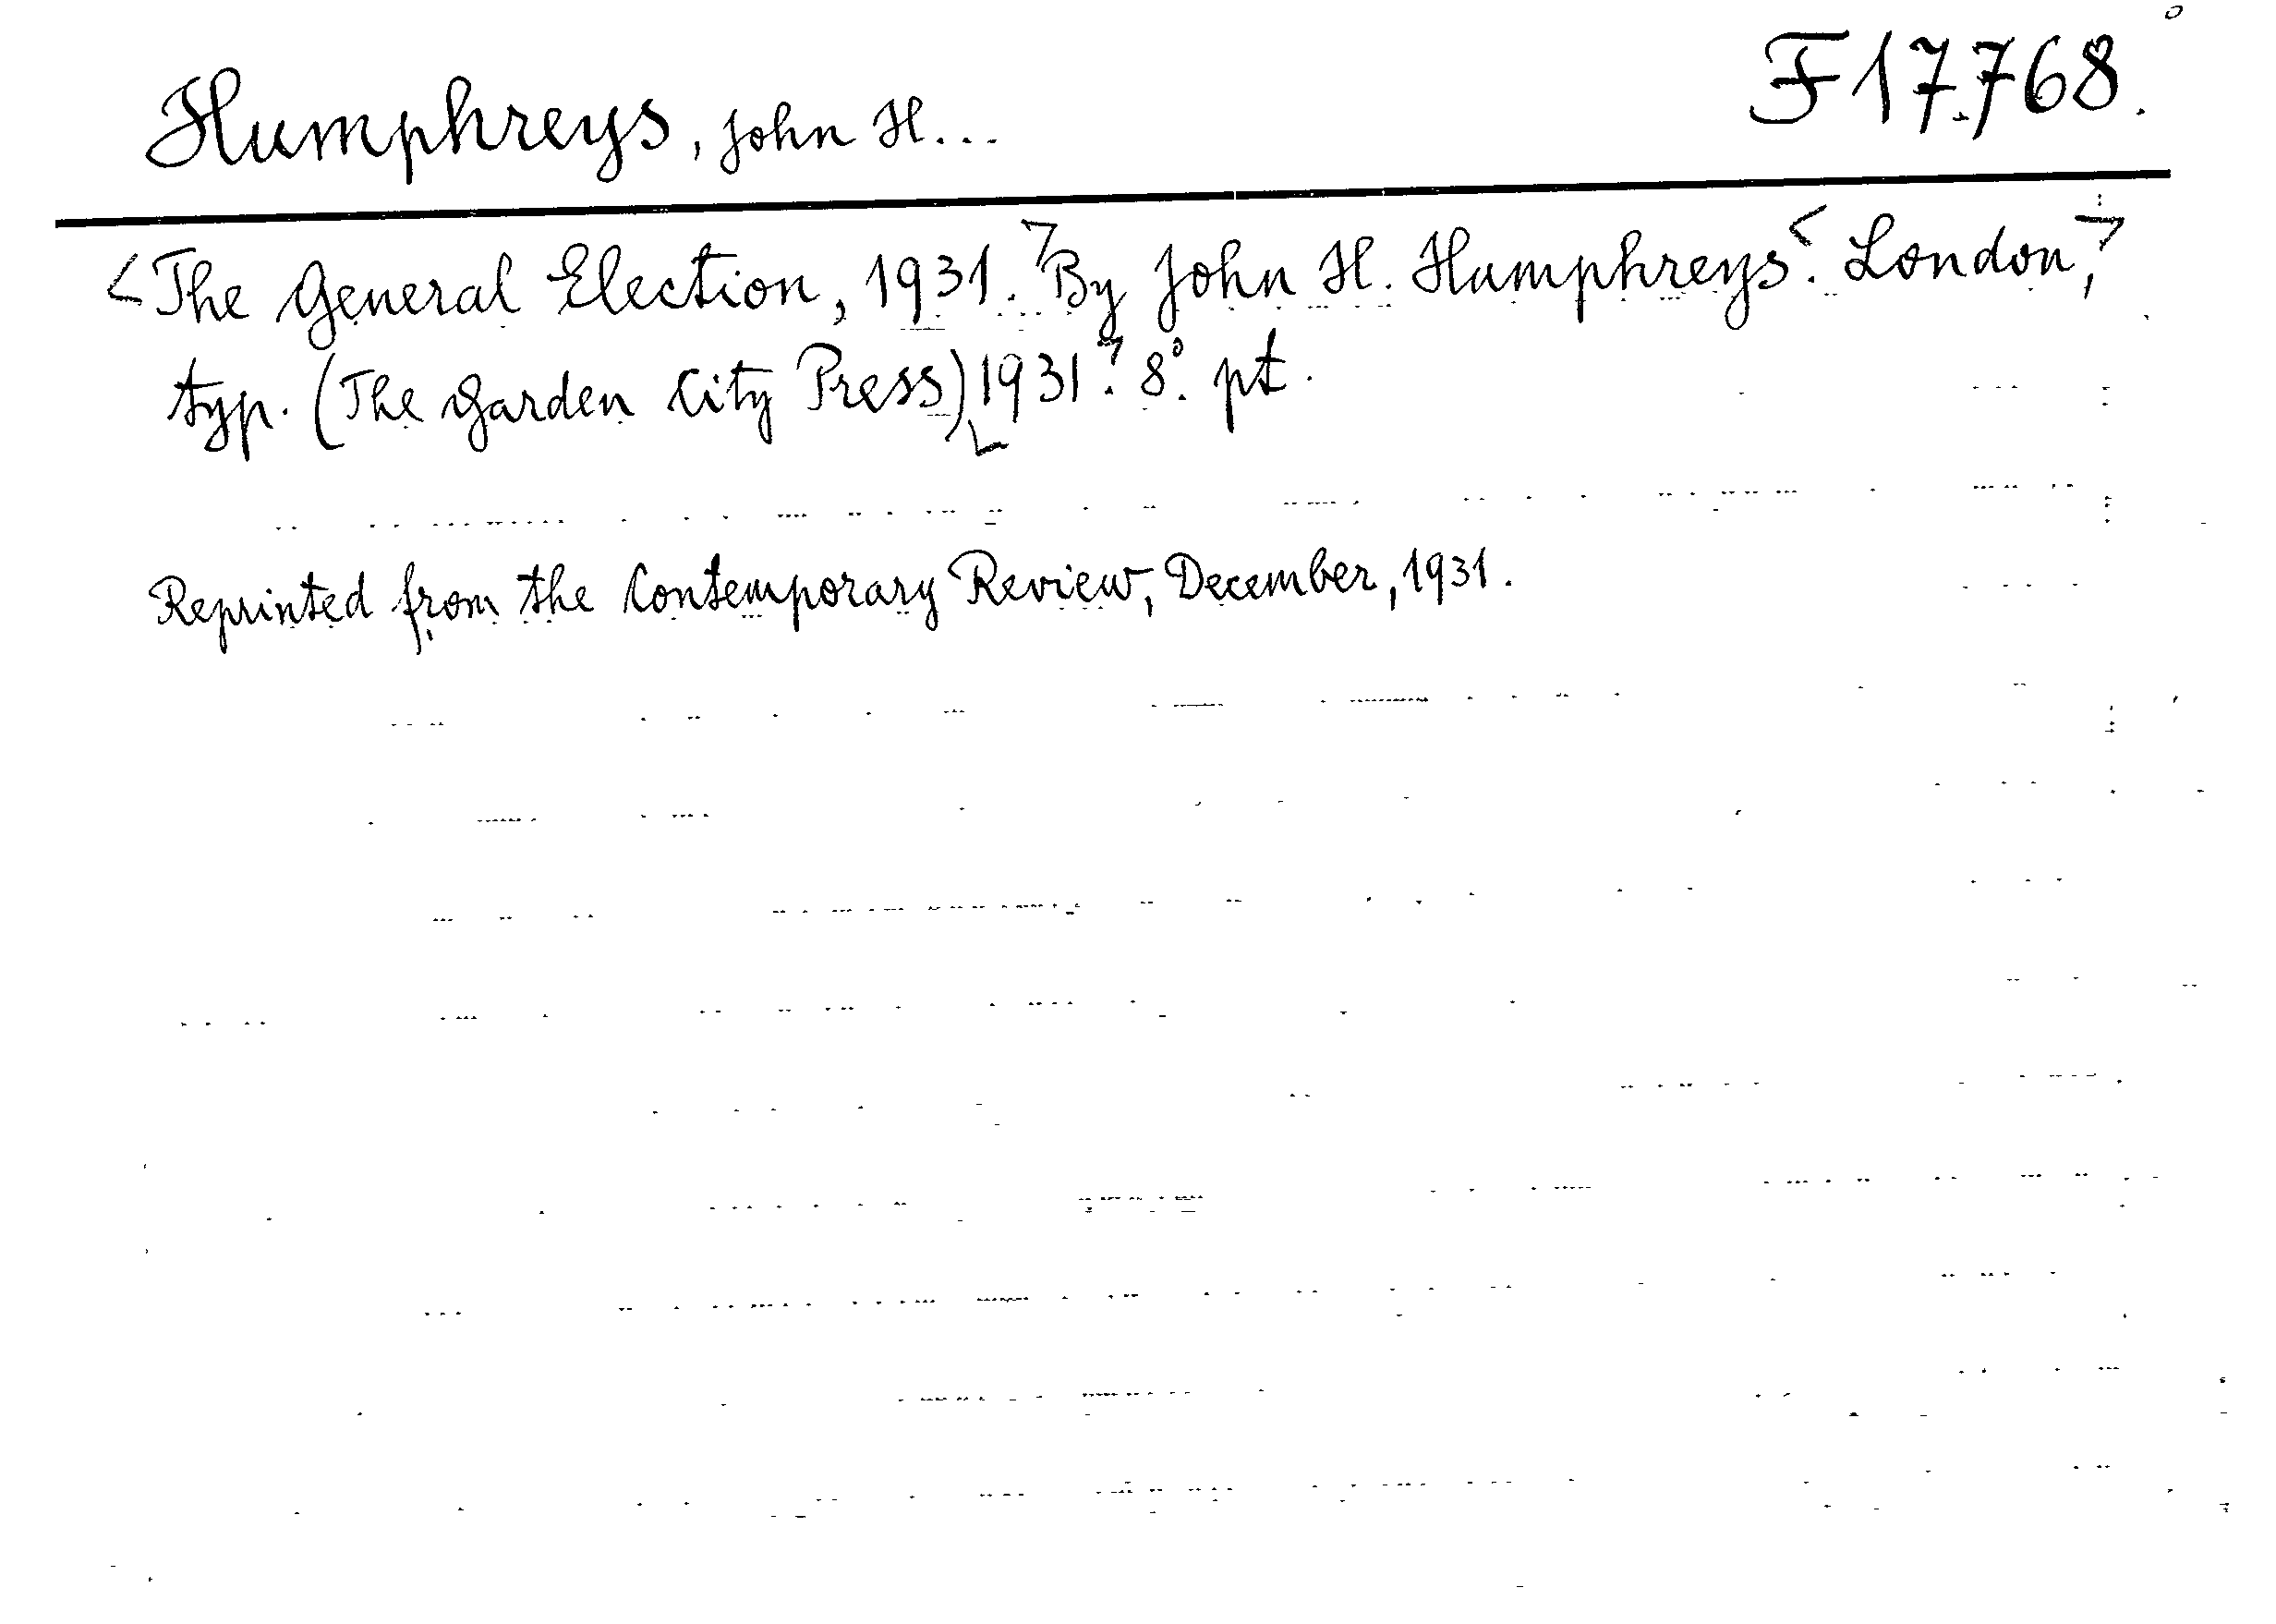 Humphreys, John H... F17.768.
<The General Election, 1931.> By John H. Humphreys<. London,>
typ. (The Garden City Press) <1931>. 8°. pt.
Reprinted from the Contemporary Review, December, 1931.